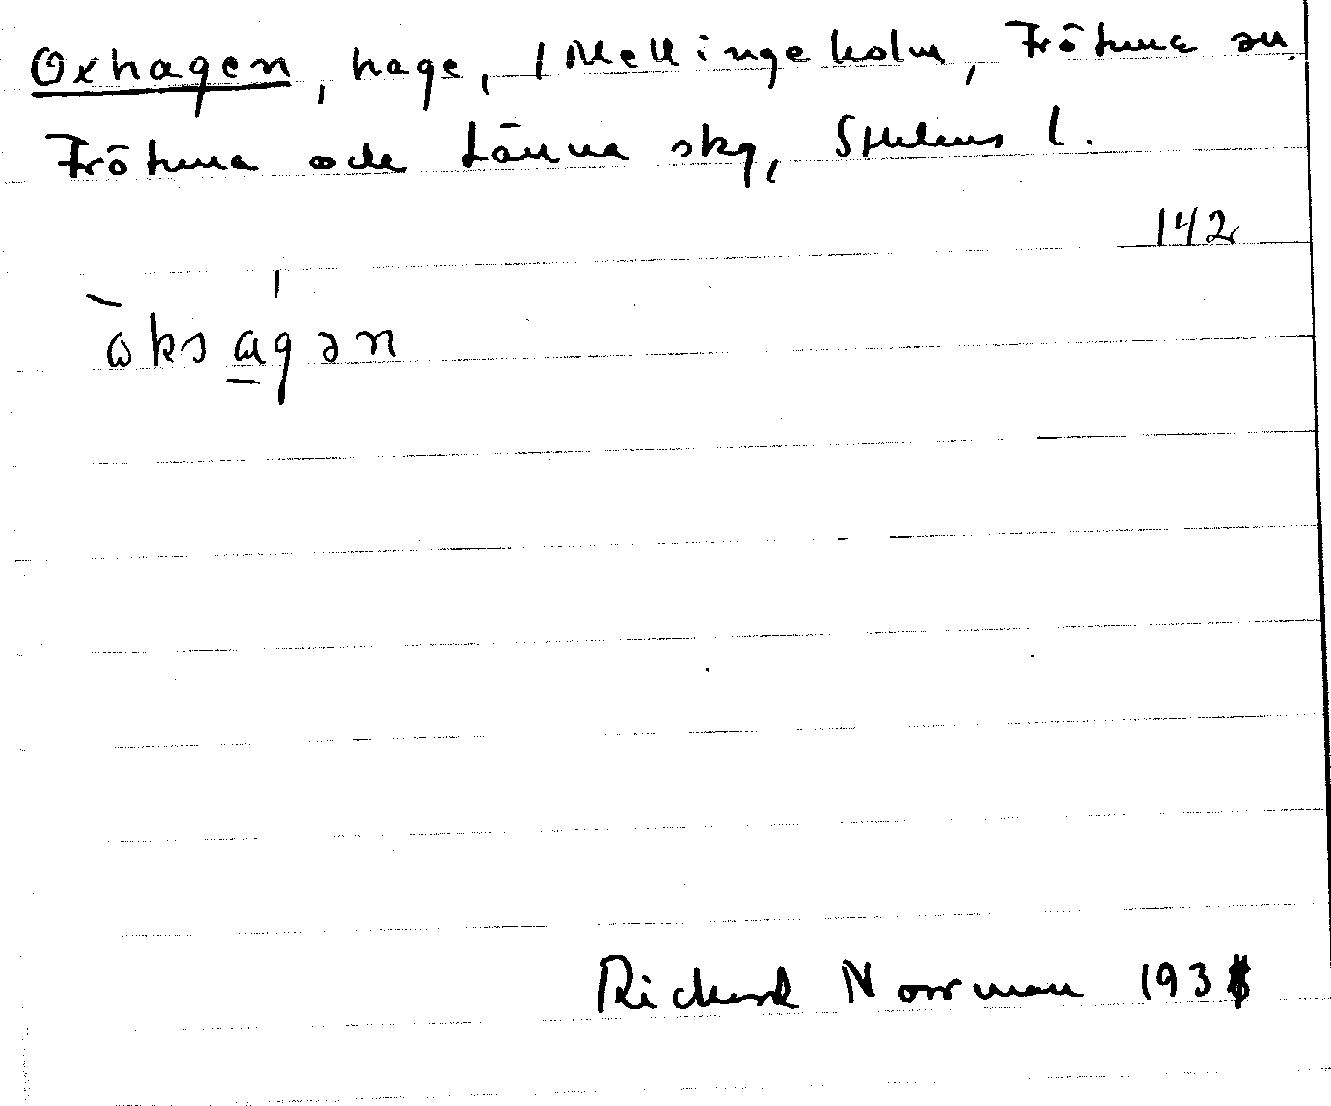 Oxhagen, hage, / Mellingeholm, Frötuna sn.
Frötuna och Länna skg, Sthlms l.
142
ὼksa̲gən
Richard Norrman 193